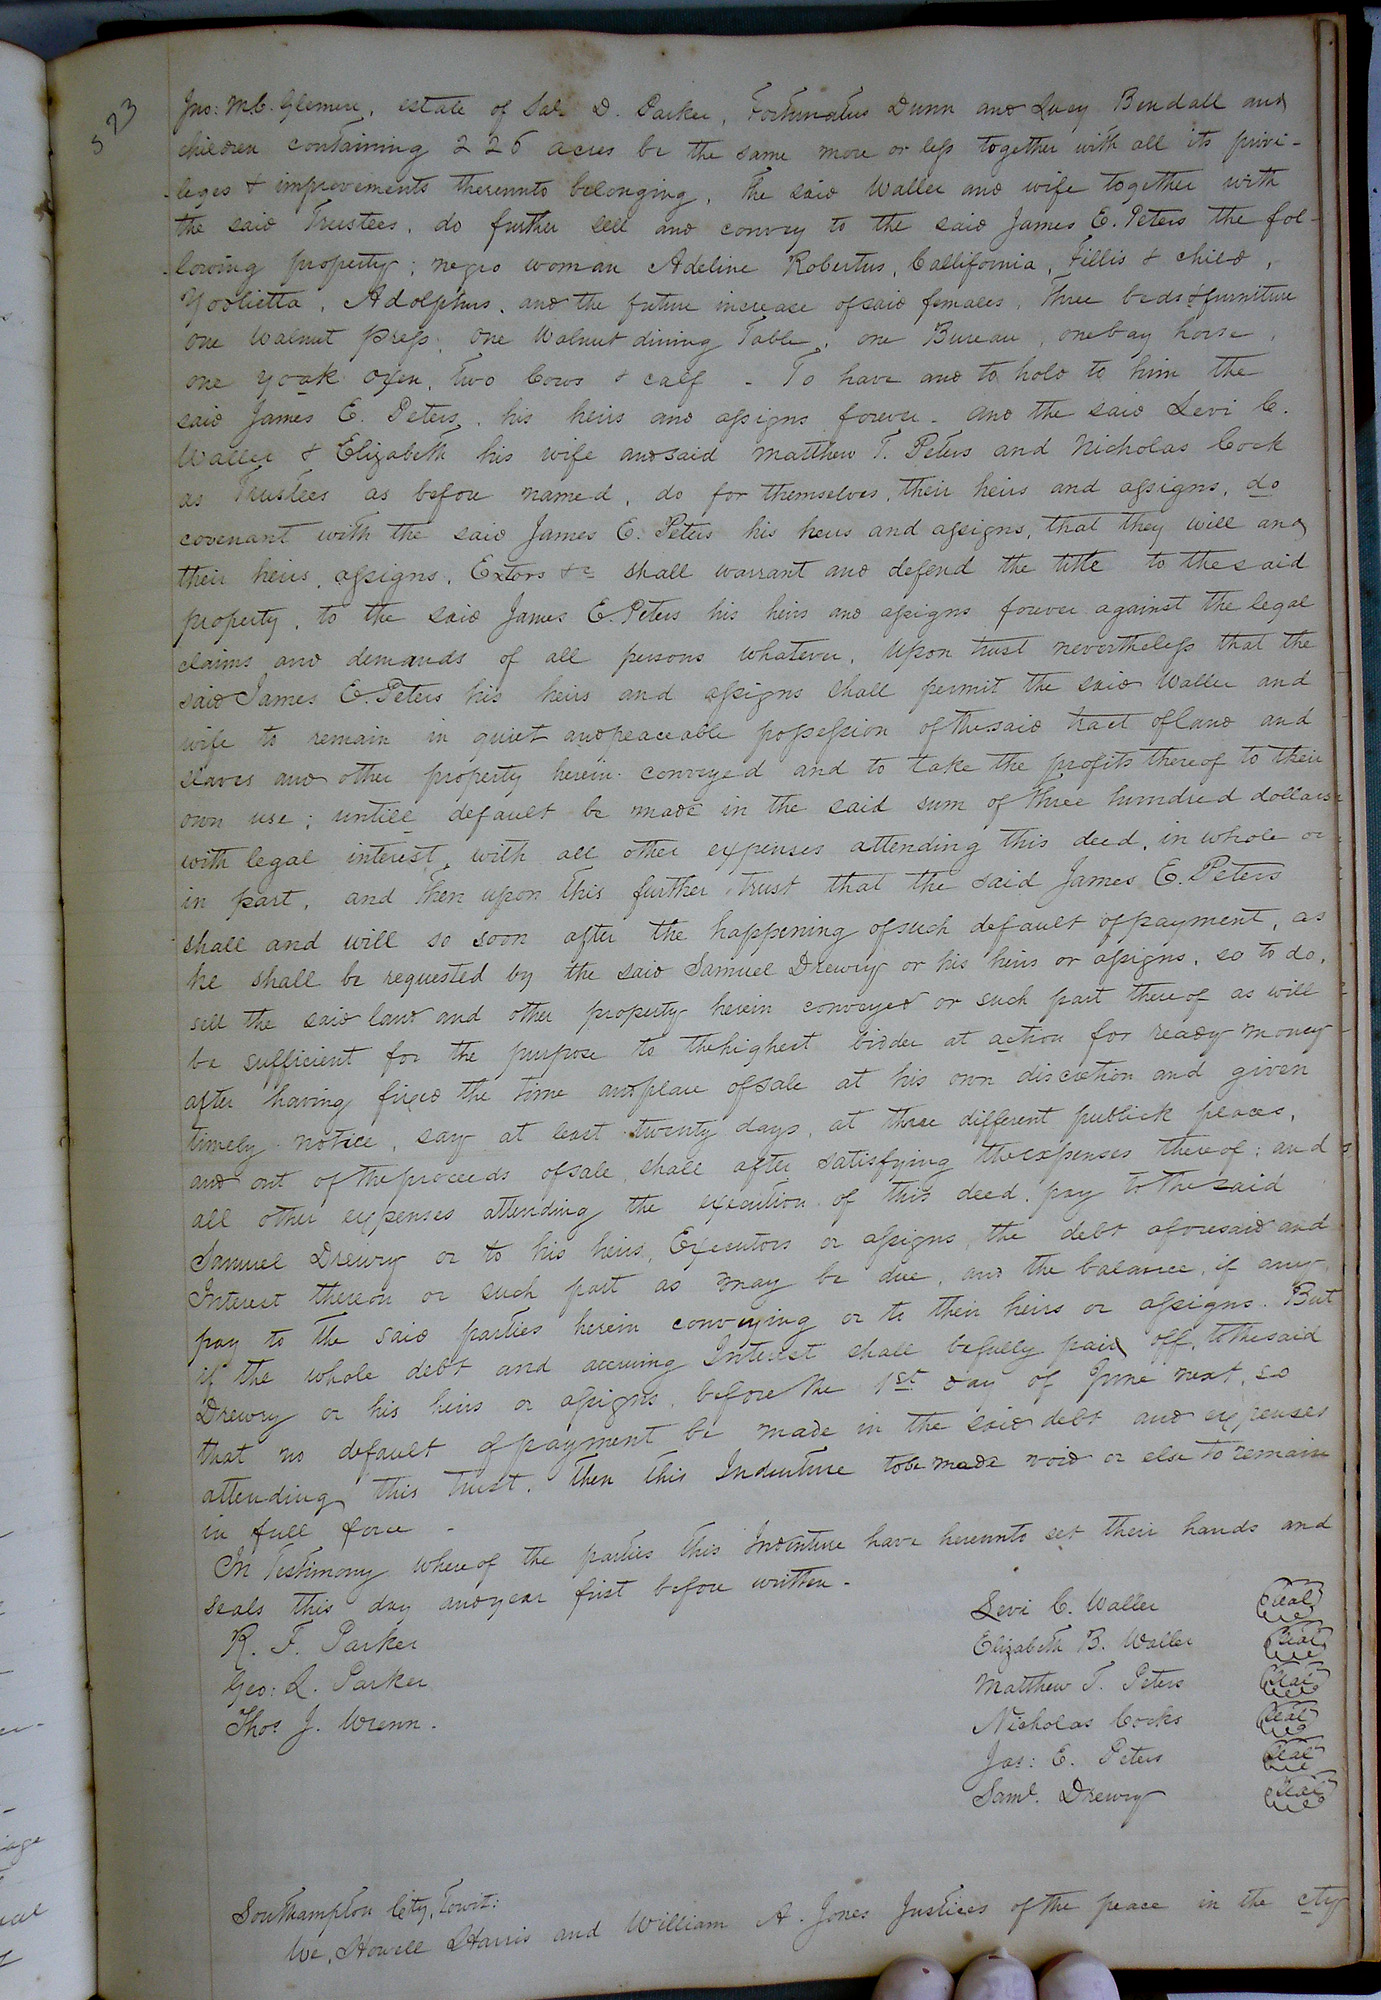 523
Jno: McC. Glemere, estate of Sal. D. Parker, Fortunatus Dunn and Lucy Bendall and
children containing 226 acres be the same more or less together with all its privi-
-leges & improvements thereunto belonging, The said Waller and wife together with
the said Trustees, do further sell and convey to the said James E. Peters the fol-
-lowing property; negro woman Adeline Robertus, Callifornia, Fillis & child,
Yoolietta, Adolphus, and the future increase of said females, Three beds & furniture
one walnut press, one Walnut dining Table, one Bureau, one bay horse,
one yoak oxen, two Cows & calf - To have and to hold to him the
said James E. Peters, his heirs and assigns forever. and the said Levi C.
Waller & Elizabeth his wife and said Matthew T. Peters and Nicholas Cock
as Trustees as before named, do for themselves, their heirs and assigns, do
covenant with the said James E. Peters his heirs and assigns, that they will and
their heirs, assigns, Extors &c shall warrant and defend the title to the said
property, to the said James E. Peters his heirs and assigns forever against the legal
claims and demands of all persons whatever, Upon trust nevertheless that the
said James E. Peters his heirs and assigns shall permit the said Waller and
wife to remain in quiet and peaceable possession of the said tract of land and
slaves and other property herein conveyed and to take the profits thereof to their
own use; untill default be made in the said sum of three hundred dollars
with legal interest, with all other expenses attending this deed, in whole or
in part, and then upon this further trust that the said James E. Peters
shall and will so soon after the happening of such default of payment, as
he shall be requested by the said Samuel Drewry or his heirs or assigns, so to do,
sell the said land and other property herein conveyed or such part thereof as will
be sufficient for the purpose to the highest bidder at action for ready money
after having fixed the time and place of sale at his own discretion and given
timely notice, say at least twenty days, at three different publick places,
and out of the proceeds of sale, shall after satisfying the expenses thereof; and
all other expenses attending the execution of this deed, pay to the said
Samuel Drewry or to his heirs, Executors or assigns, the debt aforesaid and
Interest thereon or such part as may be due, and the balance, if any,
pay to the said parties herein conveying or to their heirs or assigns. But
if the whole debt and accruing Interest shall be fully paid off, to the said
Drewry or his heirs or assigns, before the 1st day of June next, so
that no default of payment be made in the said debt and expenses
attending this trust, then this Indenture to be made void or else to remain
in full force -
In Testimony whereof the parties this Indenture have hereunto set their hands and
seals this day and year first before written.
Levi C. Waller (Seal)
R. F. Parker Elizabeth B. Waller (Seal)
Geo: L. Parker Matthew T. Peters (Seal)
Thos J. Wrenn. Nicholas Cocks (Seal)
Jas: E. Peters (Seal)
Saml. Drewry (Seal)
Southampton Cty, towit:
We, Howell Harris and William A. Jones Justices of the peace in the cty